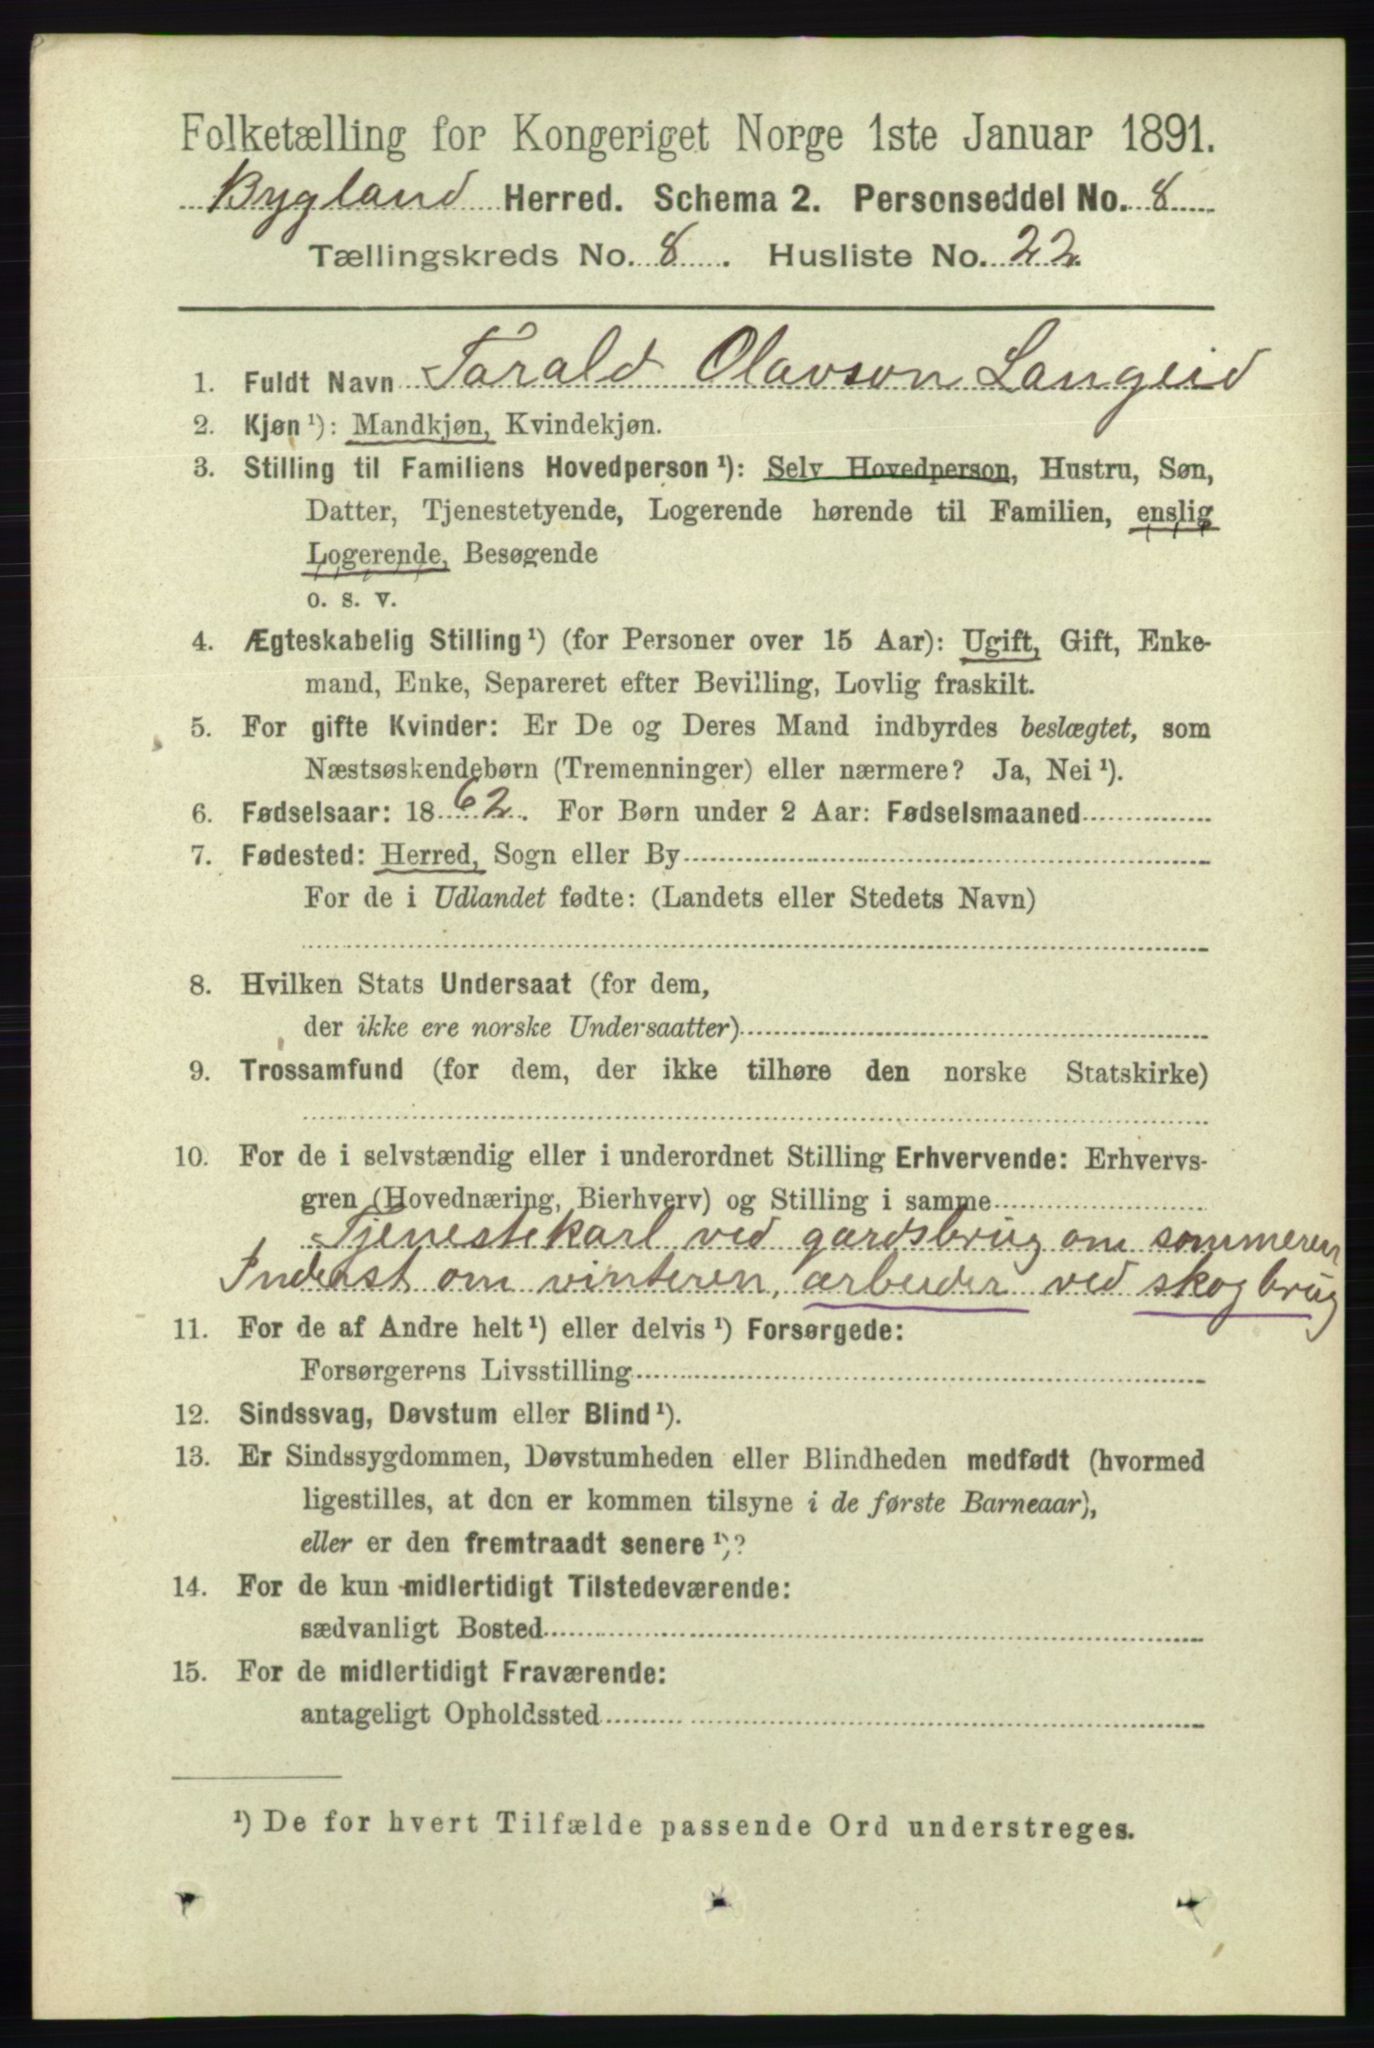 Folketælling for Kongeriget Norge 1ste Januar 1891.
Bygland Herred. Schema 2. Personseddel No. 8
Tællingskreds No. 8. Husliste No. 22
1. Fuldt Navn Tarald Olavson Langeid
2. Kjøn¹): Mandkjøn, Kvindekjøn.
3. Stilling til Familiens Hovedperson¹): Selv Hovedperson, Hustru, Søn,
Datter, Tjenestetyende, Logerende hørende til Familien, enslig
Logerende, Besøgende
o. s. v.
4. Ægteskabelig Stilling¹) (for Personer over 15 Aar): Ugift, Gift, Enke-
mand, Enke, Separeret efter Bevilling, Lovlig fraskilt.
5. For gifte Kvinder: Er De og Deres Mand indbyrdes beslægtet, som
Næstsøskendebørn (Tremenninger) eller nærmere? Ja, Nei¹).
6. Fødselsaar: 1862. For Børn under 2 Aar: Fødselsmaaned
7. Fødested: Herred, Sogn eller By
For de i Udlandet fødte: (Landets eller Stedets Navn)
8. Hvilken Stats Undersaat (for dem,
der ikke ere norske Undersaatter)
9. Trossamfund (for dem, der ikke tilhøre den norske Statskirke)
10. For de i selvstændig eller i underordnet Stilling Erhvervende: Erhvervs-
gren (Hovednæring, Bierhverv) og Stilling i samme
Tjenestekarl ved gardsbrug om sommeren
Inderst om vinteren, arbeider ved skogbrug
11. For de af Andre helt¹) eller delvis¹) Forsørgede:
Forsørgerens Livsstilling
12. Sindssvag, Døvstum eller Blind¹).
13. Er Sindssygdommen, Døvstumheden eller Blindheden medfødt (hvormed
ligestilles, at den er kommen tilsyne i de første Barneaar),
eller er den fremtraadt senere¹)?
14. For de kun midlertidigt Tilstedeværende:
sædvanligt Bosted
15. For de midlertidigt Fraværende:
antageligt Opholdssted
¹) De for hvert Tilfælde passende Ord understreges.